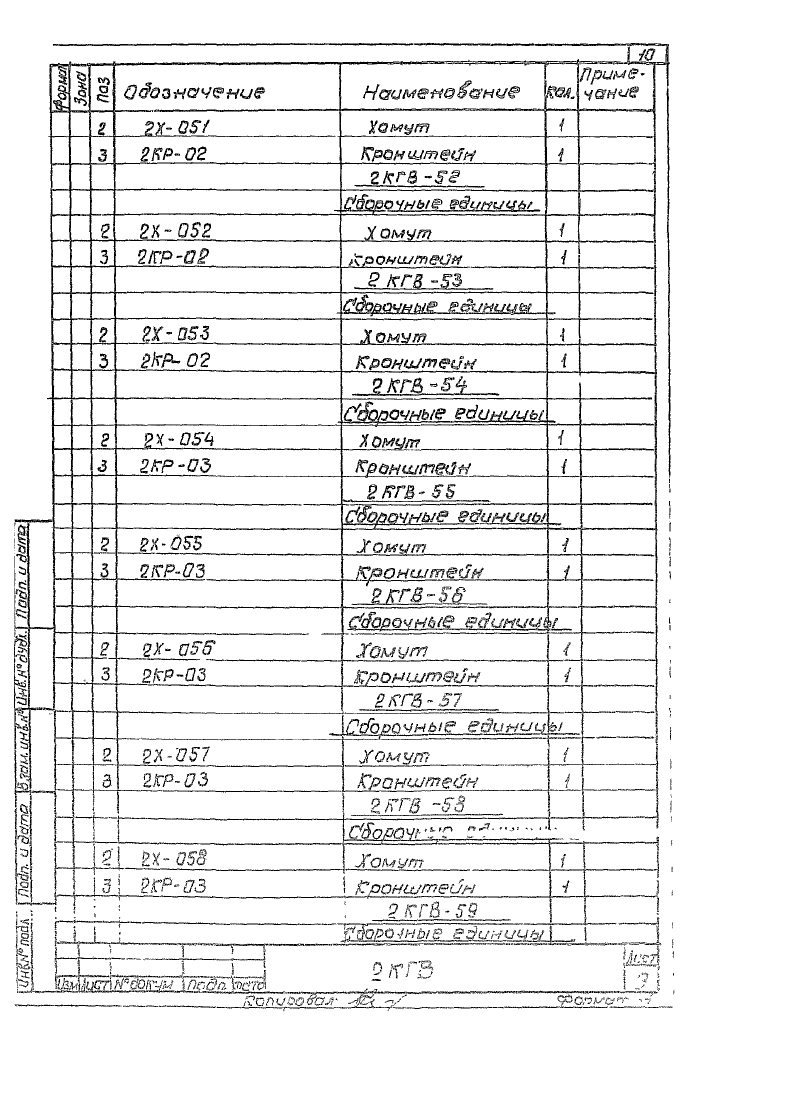 10
Форма Зона Поз Обозначение Наименование Кол. Приме-
чание
2 2Х-051 Хомут 1
3 2КР-02 Кронштейн 1
2КГВ-52
Сборочные единицы
2 2Х-052 Хомут 1
3 2КР-02 Кронштейн 1
2КГВ-53
Сборочные единицы
2 2Х-053 Хомут 1
3 2КР-02 Кронштейн 1
2КГВ-54
Сборочные единицы
2 2Х-054 Хомут 1
3 2КР-03 Кронштейн 1
2КГВ-55
Сборочные единицы
2 2Х-055 Хомут 1
3 2КР-03 Кронштейн 1
2КГВ-56
Сборочные единицы
2 2Х-056 Хомут 1
3 2КР-03 Кронштейн 1
2КГВ-57
Сборочные единицы
2 2Х-057 Хомут 1
3 2КР-03 Кронштейн 1
2КГВ-58
Сборочные
2 2Х-058 Хомут 1
3 2КР-03 Кронштейн 1
2КГВ-59
Сборочные единицы
Подп. и дата
Инв.№дубл.
Взам.инв.№
Подп. и дата
Инв.№подл.
Изм Лист №докум Подп дата
2КГВ
Лист
9
Копировал
Формат